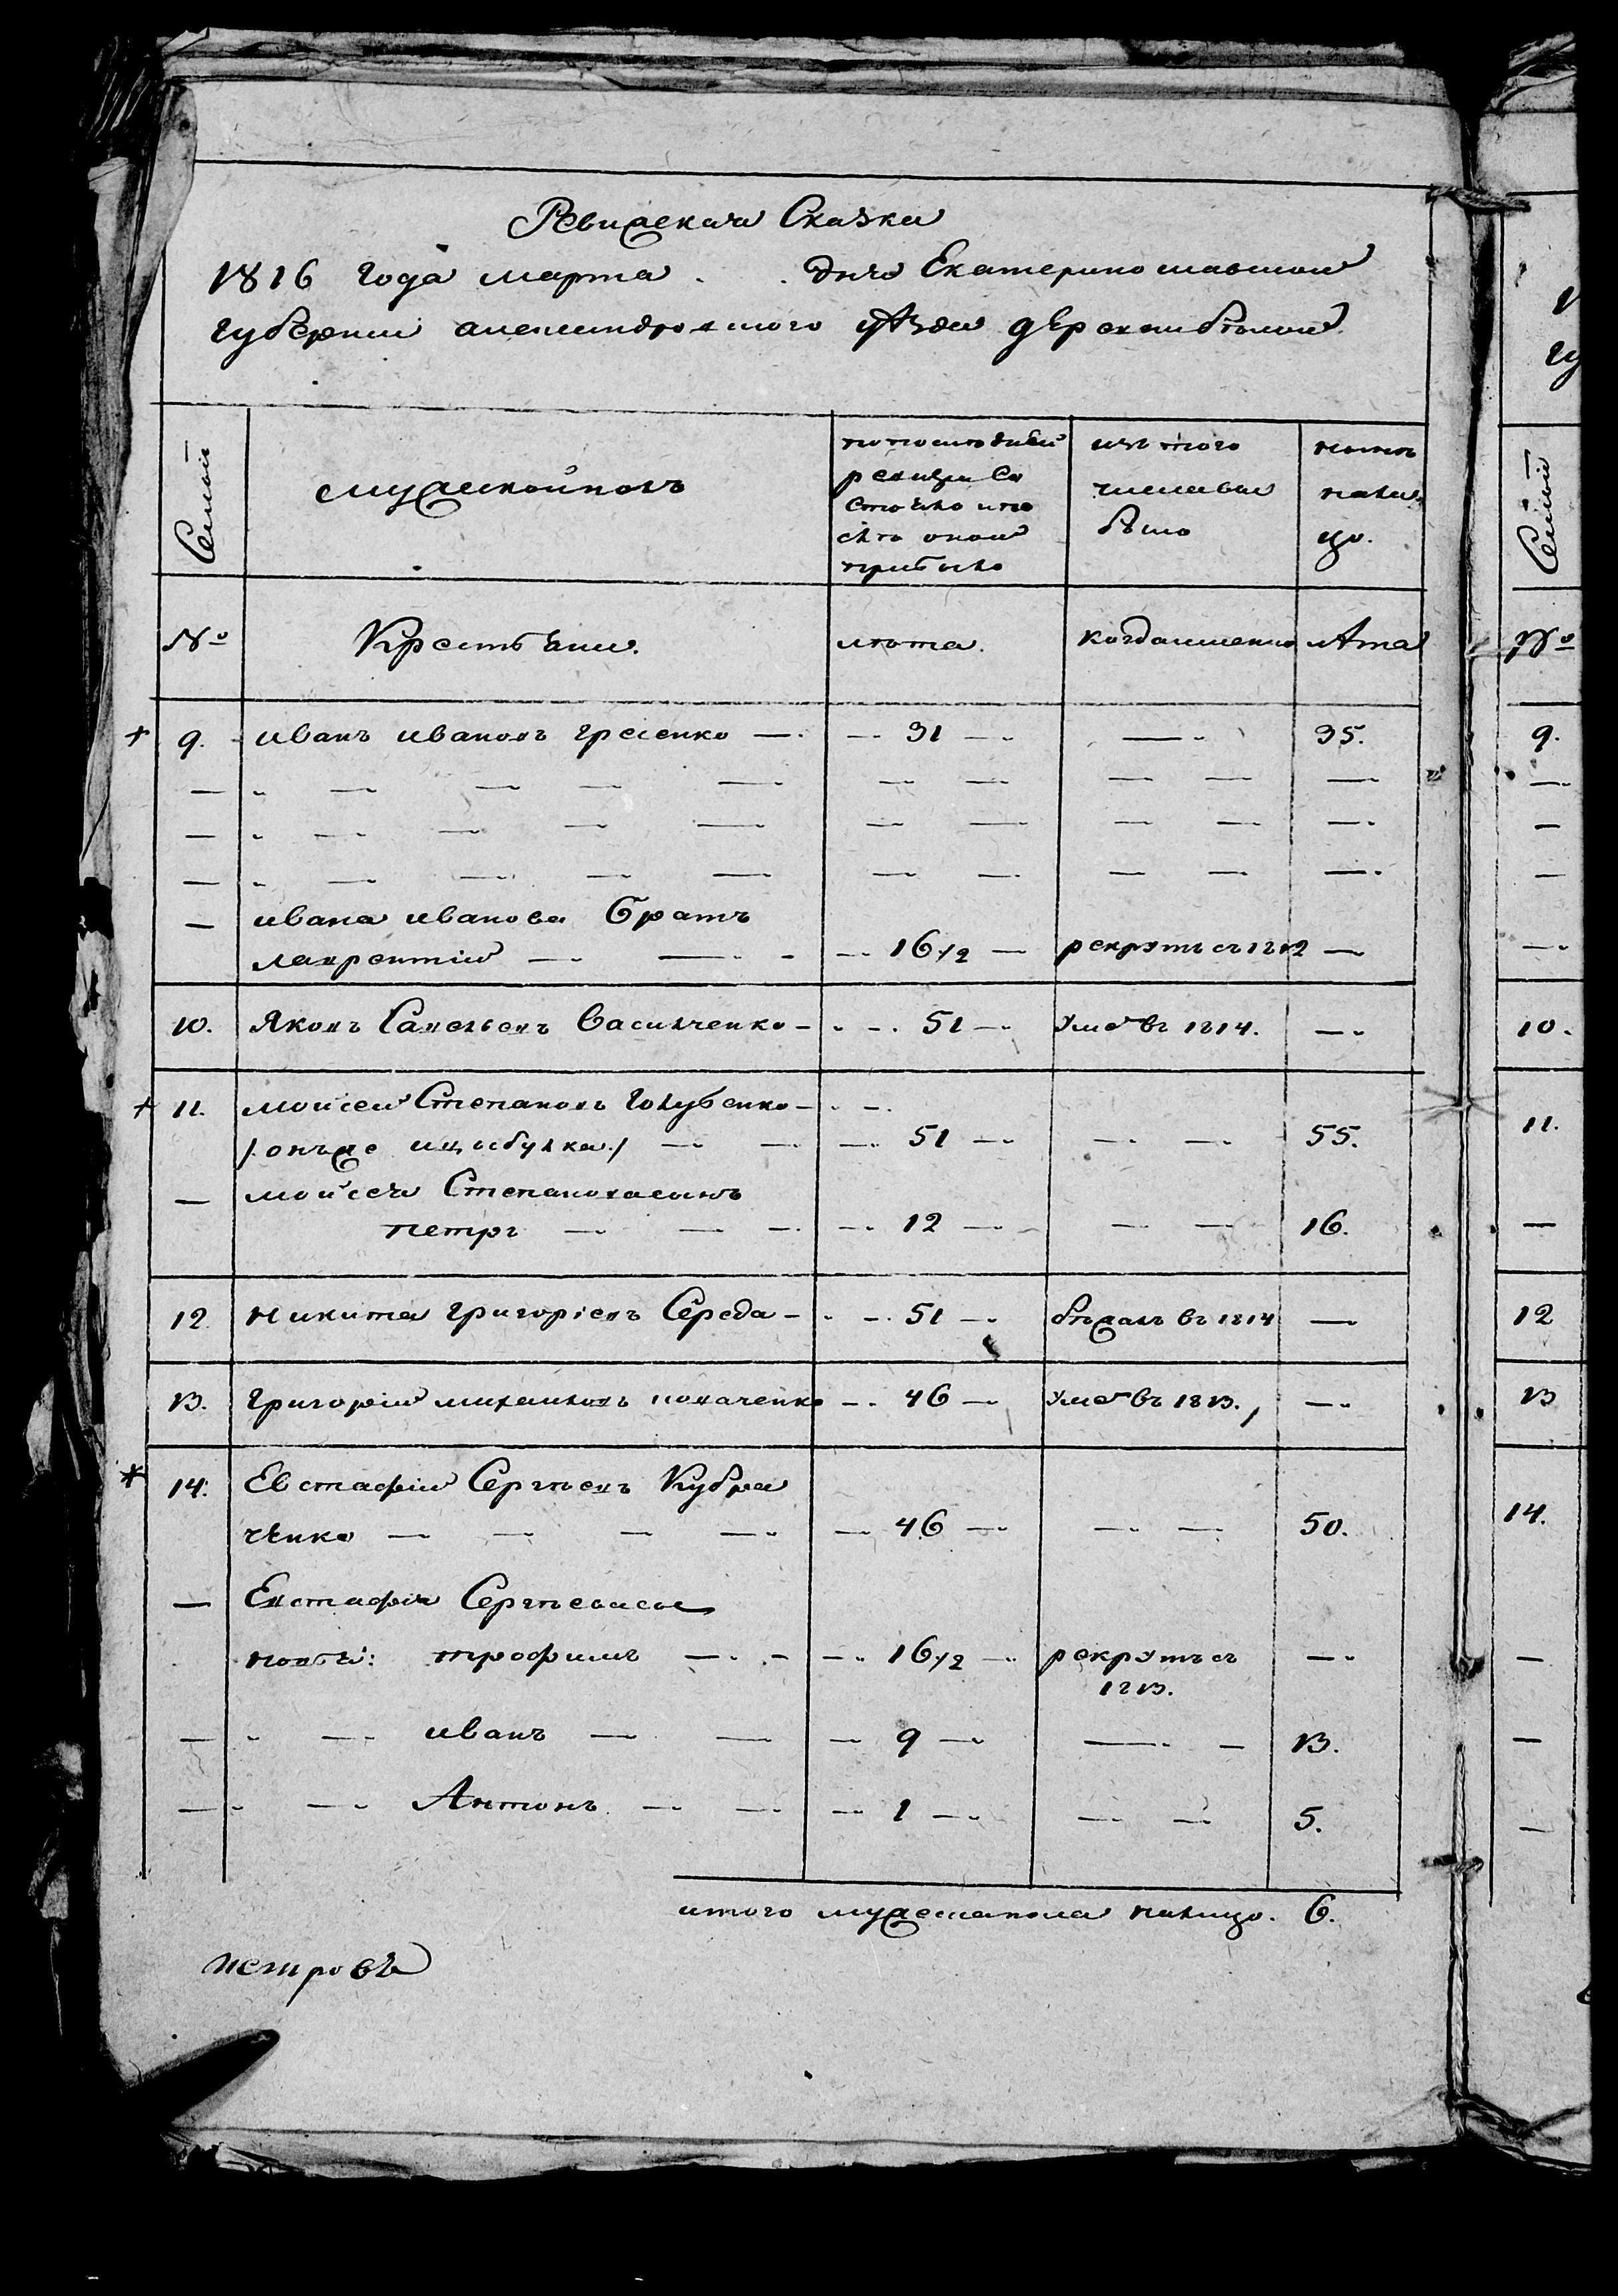 Ревижская Сказка
1816 года марта . . дня Екатеринославской
губернии александровского уѣзда
Семьи
мужской полъ
по последней
ревизіи со
стояло и по
слѣ оной
прибыло
изъ того
числа вы
было
нынѣ
на ли
цо.
№
Крестьяни.
лѣта.
когда именно
лѣта
+ 9. иванъ ивановъ — 31 — — 35.
— ивана иванова братъ
лаврентій — 16 1/2 — рекрутъ съ 1812 —
10. Яковъ Савельевъ Василченко — 51 — умеръ въ 1814. —
+ 11. моисей Степановъ Голубенко —
/: онъ же — 51 — — 55.
— моисея Степанова сынъ
петръ — 12 — — 16.
12 никита григоріевъ Середа — 51 — бѣжалъ въ 1814 —
13. григорій михайловъ — 46 — умеръ въ 1813. —
* 14. Евстафій Сергѣевъ Кубра
ченко — 46 — — 50.
— Евстафія Сергѣева сы
новья: трофимъ — 16 1/2 — рекрутъ съ —
1813.
— иванъ — 9 — — 13.
— Антонъ — 1 — — 5.
итого мужеска пола налицо. 6.
петровъ
Семьи
№
9.
10.
11.
12
13
14.